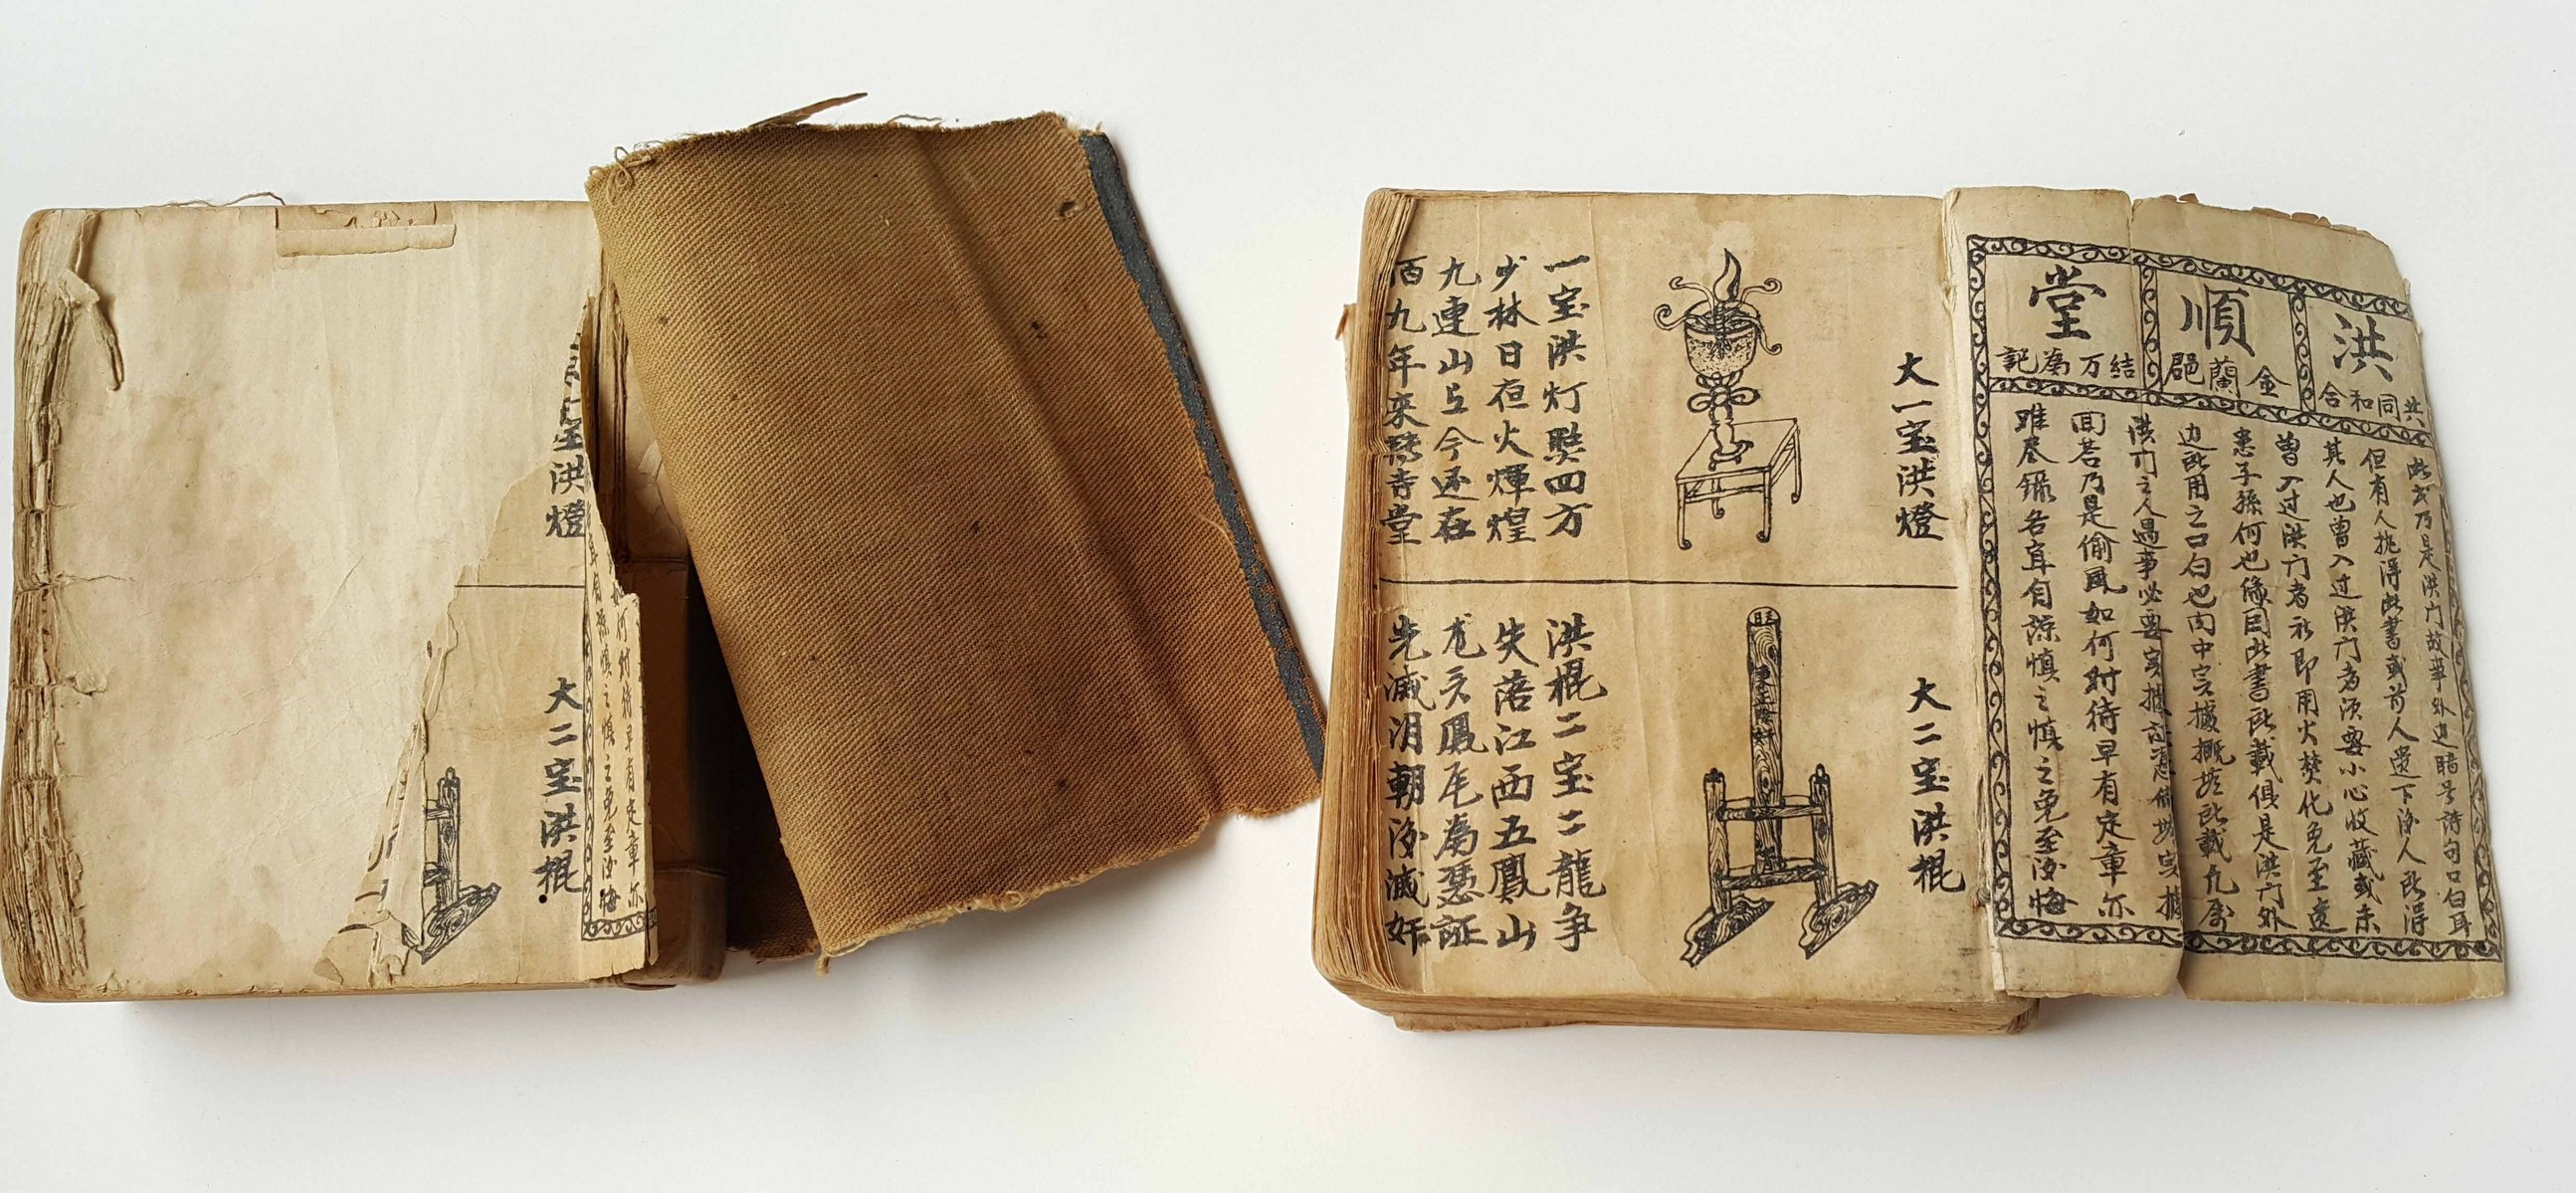 洪順堂
共同和合
金蘭郡
結万為記
此式乃是洪门故事外边暗号詩句口白耳
但有人挑得此書或前人遗下後人所得
其人也曽入过洪门者须要小心收藏或未
曽入过洪门者礽即用火焚化免至遗
患子孫何也缘因此書所載俱是洪门外
边所用之口白也内中実據概垓所載凢属
洪门之人遇事必要実據
囬若乃是偷風如何对待早有定章亦
难尽錄各宜自諒慎之慎之免至後悔
大一宝洪燈
一宝洪灯熙四方
少林日夜火煇煌
九連山上今还在
佰九年来慤寺堂
大二宝洪棍
洪棍二宝二龍争
失落江西五鳳山
龙头鳳尾為憑証
先滅洞朝後滅奸
宝洪燈
大二宝洪棍
如何对待早有定章亦
宜自諒慎之慎之免至後悔